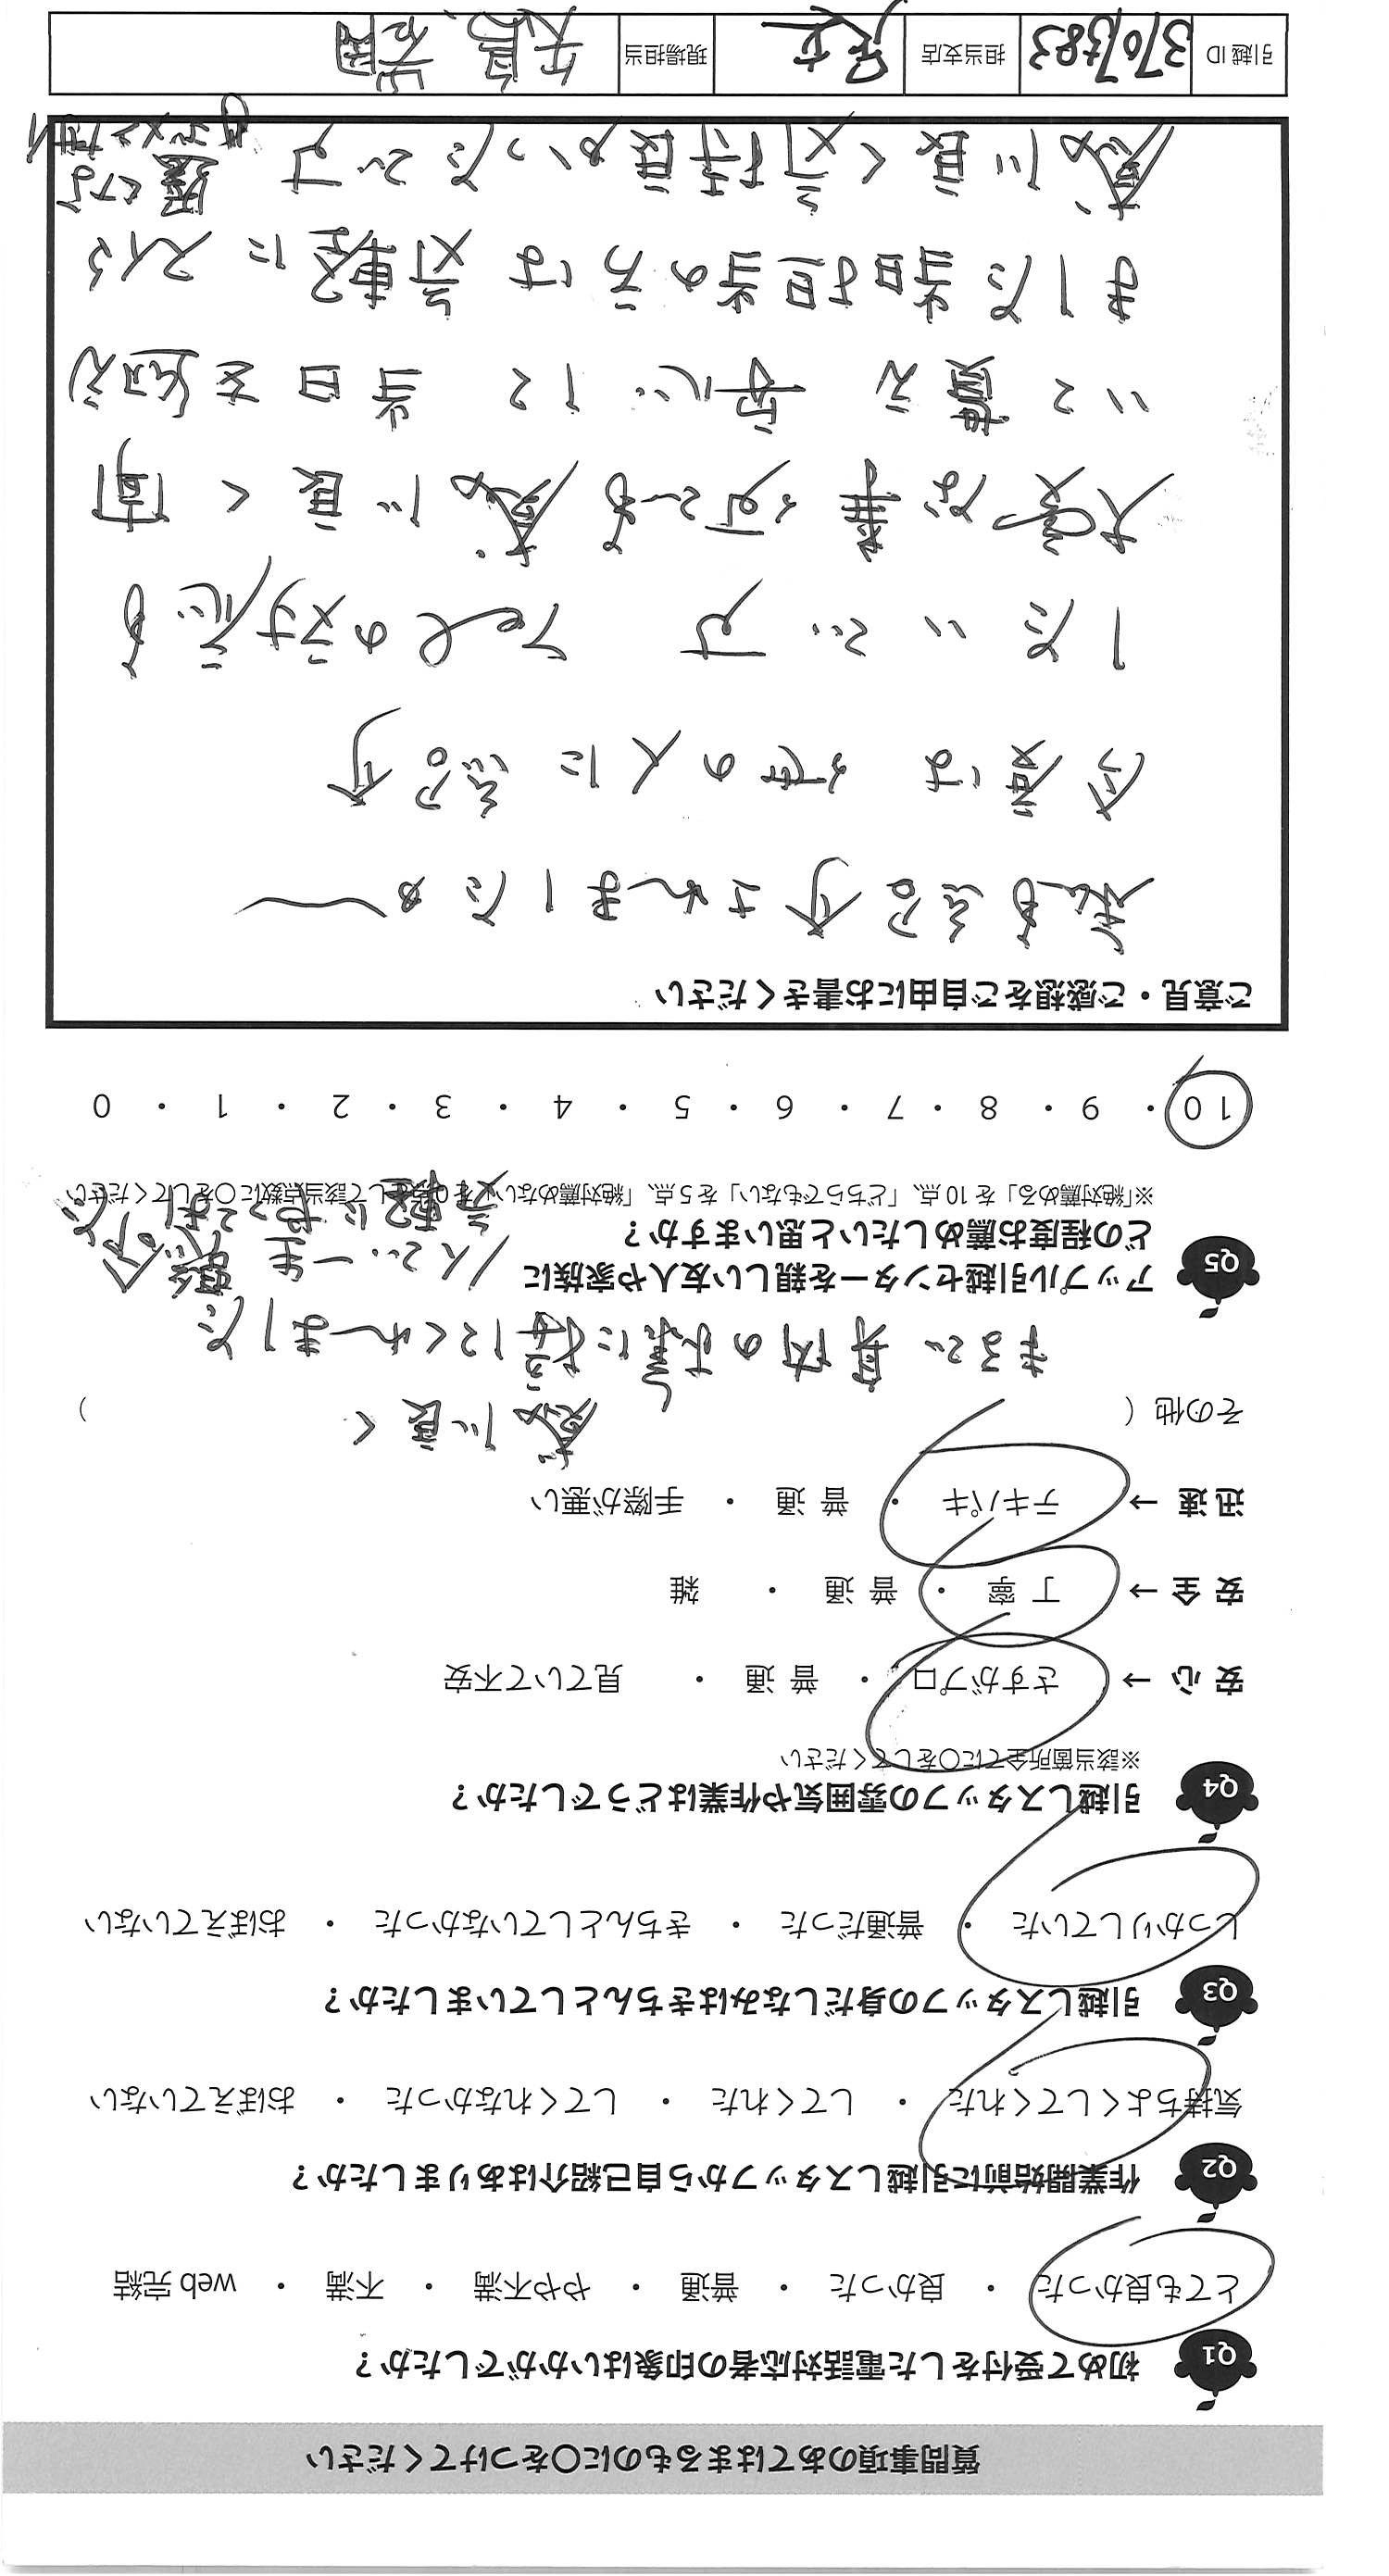 質問事項のあてはまるものに〇をつけてください
Q1 初めて受付をした電話対応者の印象はいかがでしたか？
とても良かった ・ 良かった ・ 普通 ・ やや不満 ・ 不満 ・ web 完結
Q2 作業開始前に引越しスタッフから自己紹介はありましたか？
気持ちよくしてくれた ・ してくれた ・ してくれなかった ・ おぼえていない
Q3 引越しスタッフの身だしなみはきちんとしていましたか？
しっかりしていた ・ 普通だった ・ きちんとしていなかった ・ おぼえていない
Q4 引越しスタッフの雰囲気や作業はどうでしたか？
※該当箇所全てに〇をしてください
安 心 → さすがプロ ・ 普 通 ・ 見ていて不安
安 全 → 丁 寧 ・ 普 通 ・ 雑
迅 速 → テキパキ ・ 普 通 ・ 手際が悪い
その他（ 感じ良く ）
まるで 身内の様に接してくれました
Q5 アップル引越センターを親しい友人や家族に
どの程度お薦めしたいと思いますか？
人で 一生懸命
気軽に
※「絶対薦める」を 10 点、「どちらでもない」を 5 点、「絶対薦めない」を 0 点として該当点数に〇をしてください
10 ・ 9 ・ 8 ・ 7 ・ 6 ・ 5 ・ 4 ・ 3 ・ 2 ・ 1 ・ 0
ご意見・ご感想をご自由にお書きください
私も紹介されましたが
今度は 他の人に紹介
したいです Telの対応も
大変な事何でも感じ良く聞
いて貰え 安心して 当日を迎え
ました当日担当の方は 気軽に
感じ良く気持良かったです
引越 ID 3707383 担当支店 現場担当 矢島、岩岡